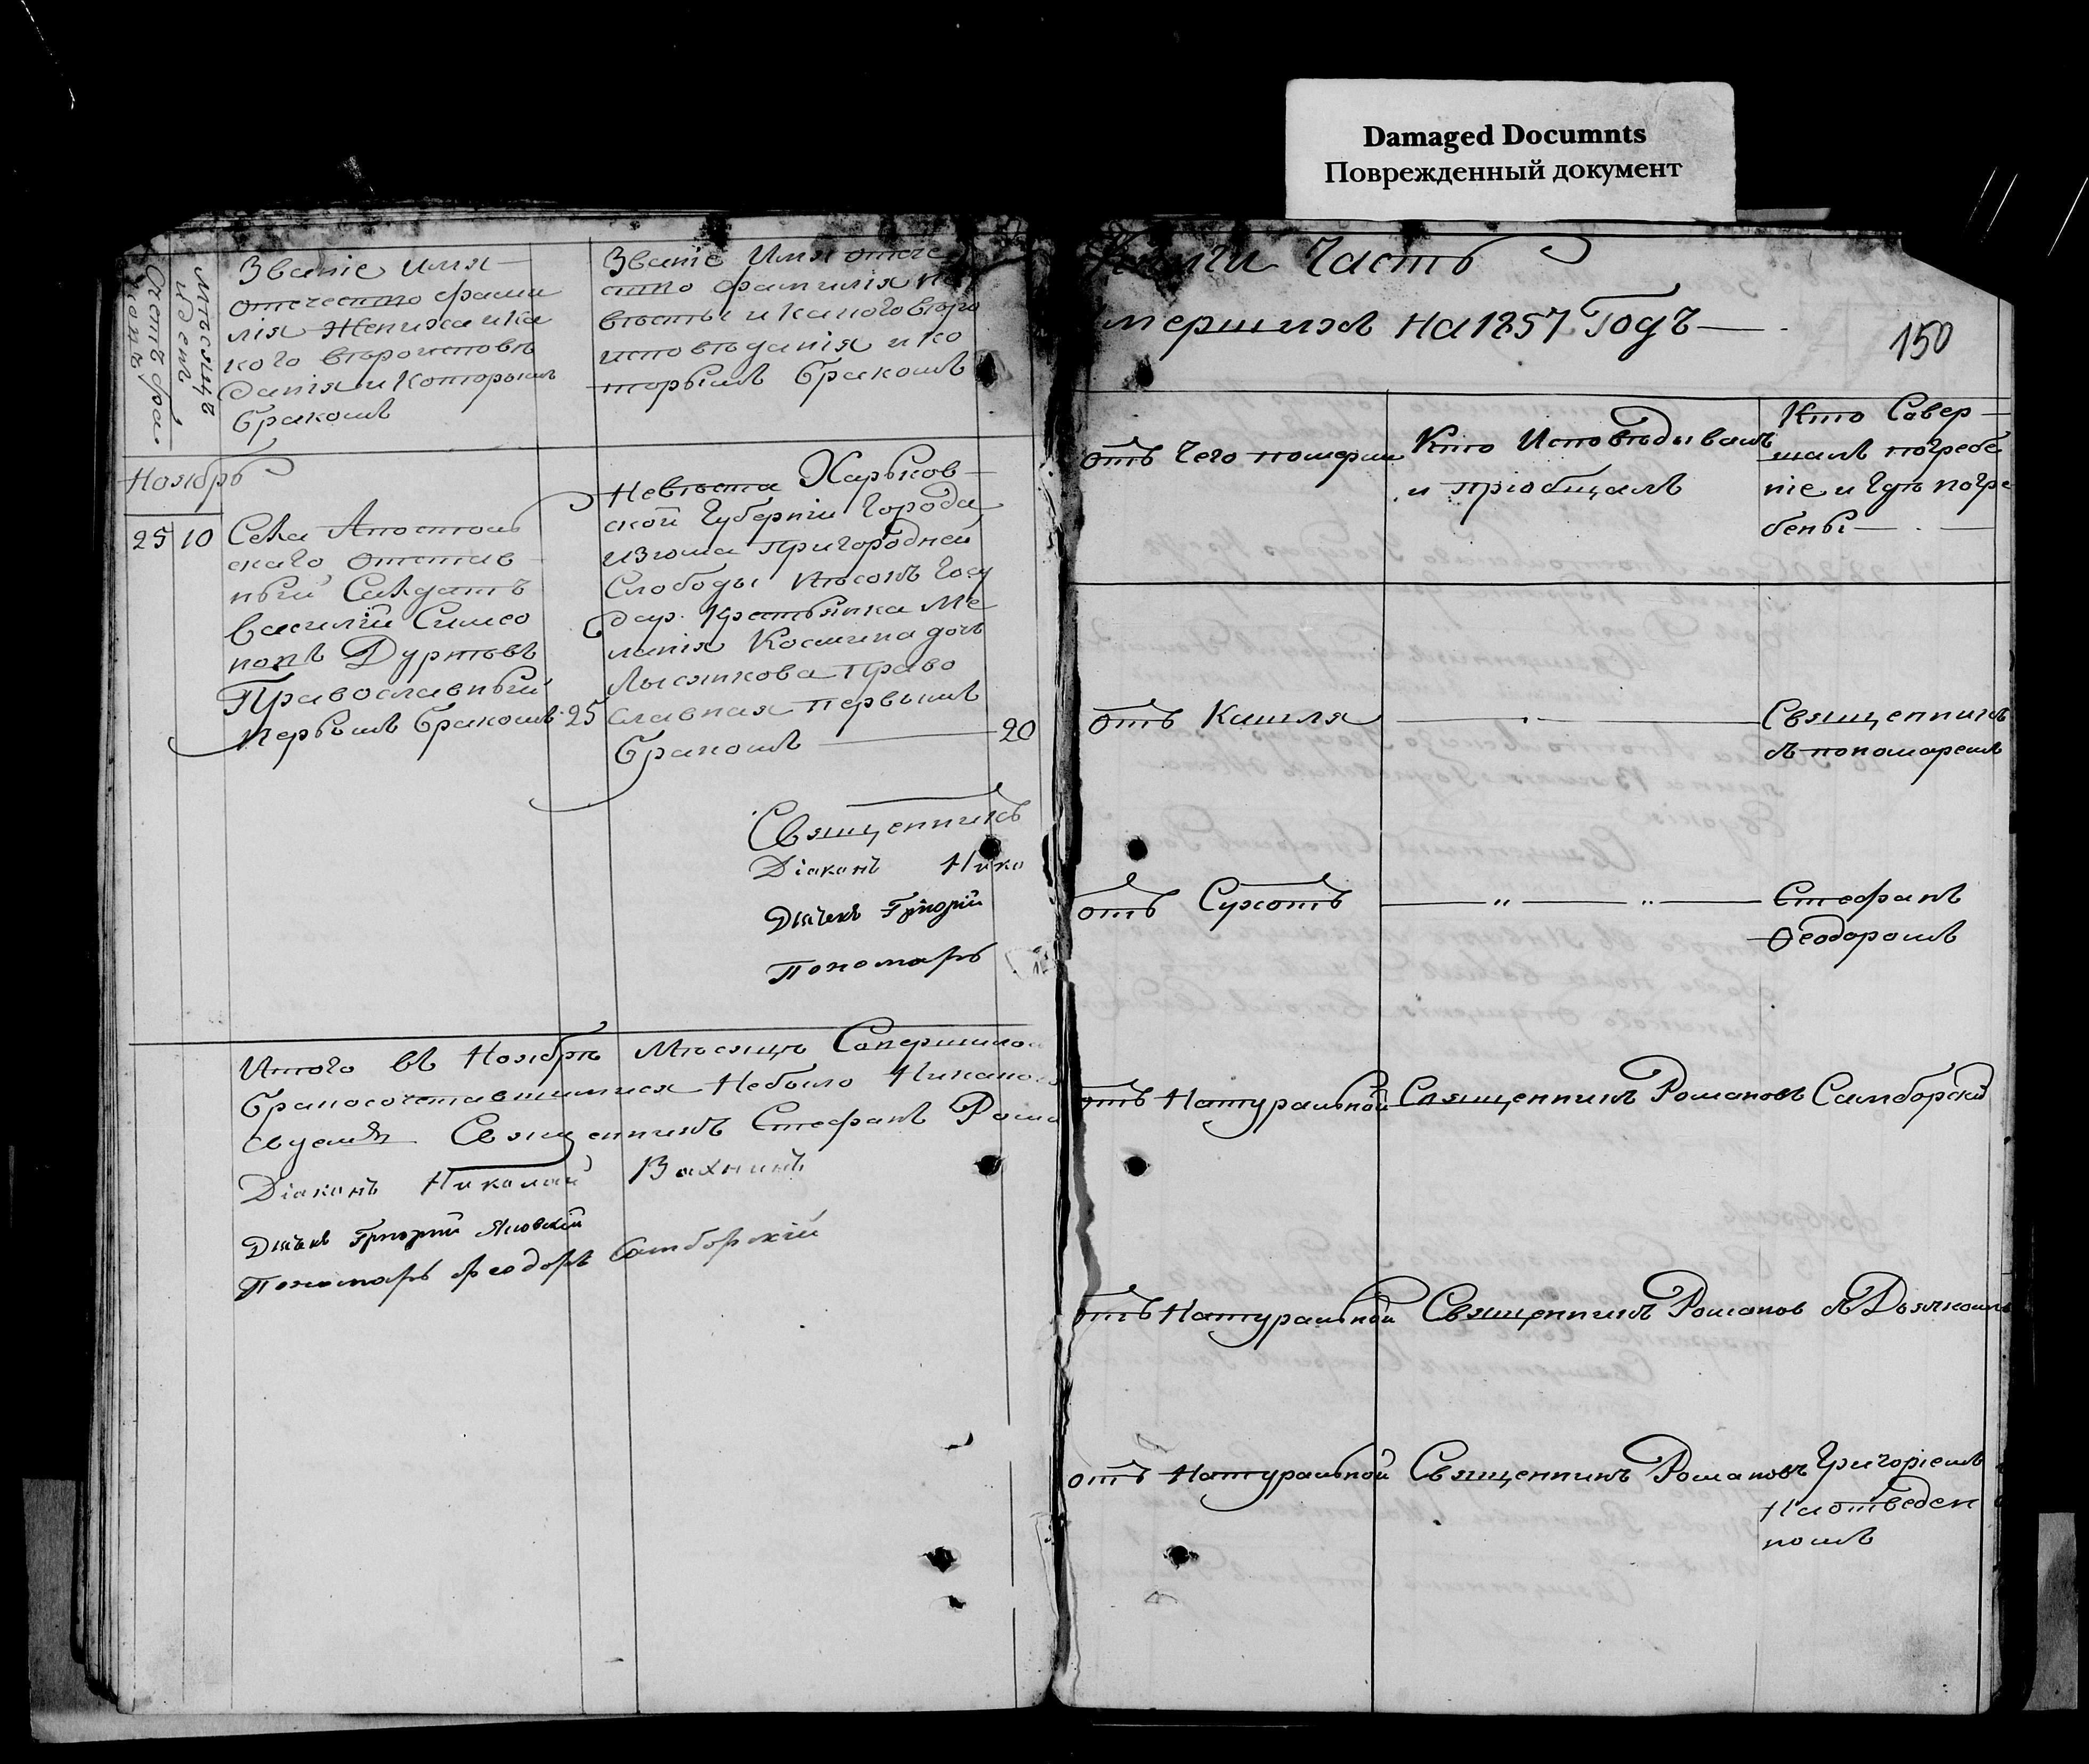 Damaged Documnts
Поврежденный документ
Счетъ бра
ковъ
Мѣсяцъ
и день
Званіе Имя
отечество фами
лія Жениха и ка
кого вѣроисповѣ
данія и Которымъ
бракомъ
Званіе Имя отече
ство фамилія не
вѣсты и какого вѣро
исповѣданія и ко
торымъ бракомъ
Ноябрь
25 10
Села Апостоль
скаго отстав
ный Салдатъ
Василій Симео
новъ Дурневъ
Православный
первымъ бракомъ 25
Невѣста Харьков
ской Губерніи Города
Изюма пригородней
Слободы Госу
дар. Крестьянка Ме
ланія Космина дочь
Лысянкова право
славная первымъ
бракомъ 20
Священникъ
Діаконъ Нико
Дьячекъ Григорій
Пономарь
Итого въ Ноябрѣ Мѣсяцѣ
бракосочетавшихся Небыло
Священникъ Стефанъ Рома
Діаконъ Николай Вахнинъ
Дьячекъ Григорій Яновскій
Пономарь Феодоръ Самборскій
Книги Часть
мершихъ на 1857 Годъ
150
отъ Чего померли
Кто Исповѣдывалъ
и пріобщалъ
Кто Совер
шалъ погребе
ніе и гдѣ погре
бены
отъ Кашля
Священникъ
съ пономаремъ
отъ Сухотъ
Стефанъ
Ѳеодоромъ
отъ Натуральной Священникъ Романовъ Самборскій
отъ Натуральной Священникъ Романов съ Дьячкомъ
отъ Натуральной Священникъ Романовъ Григоріемъ
На отведен
номъ